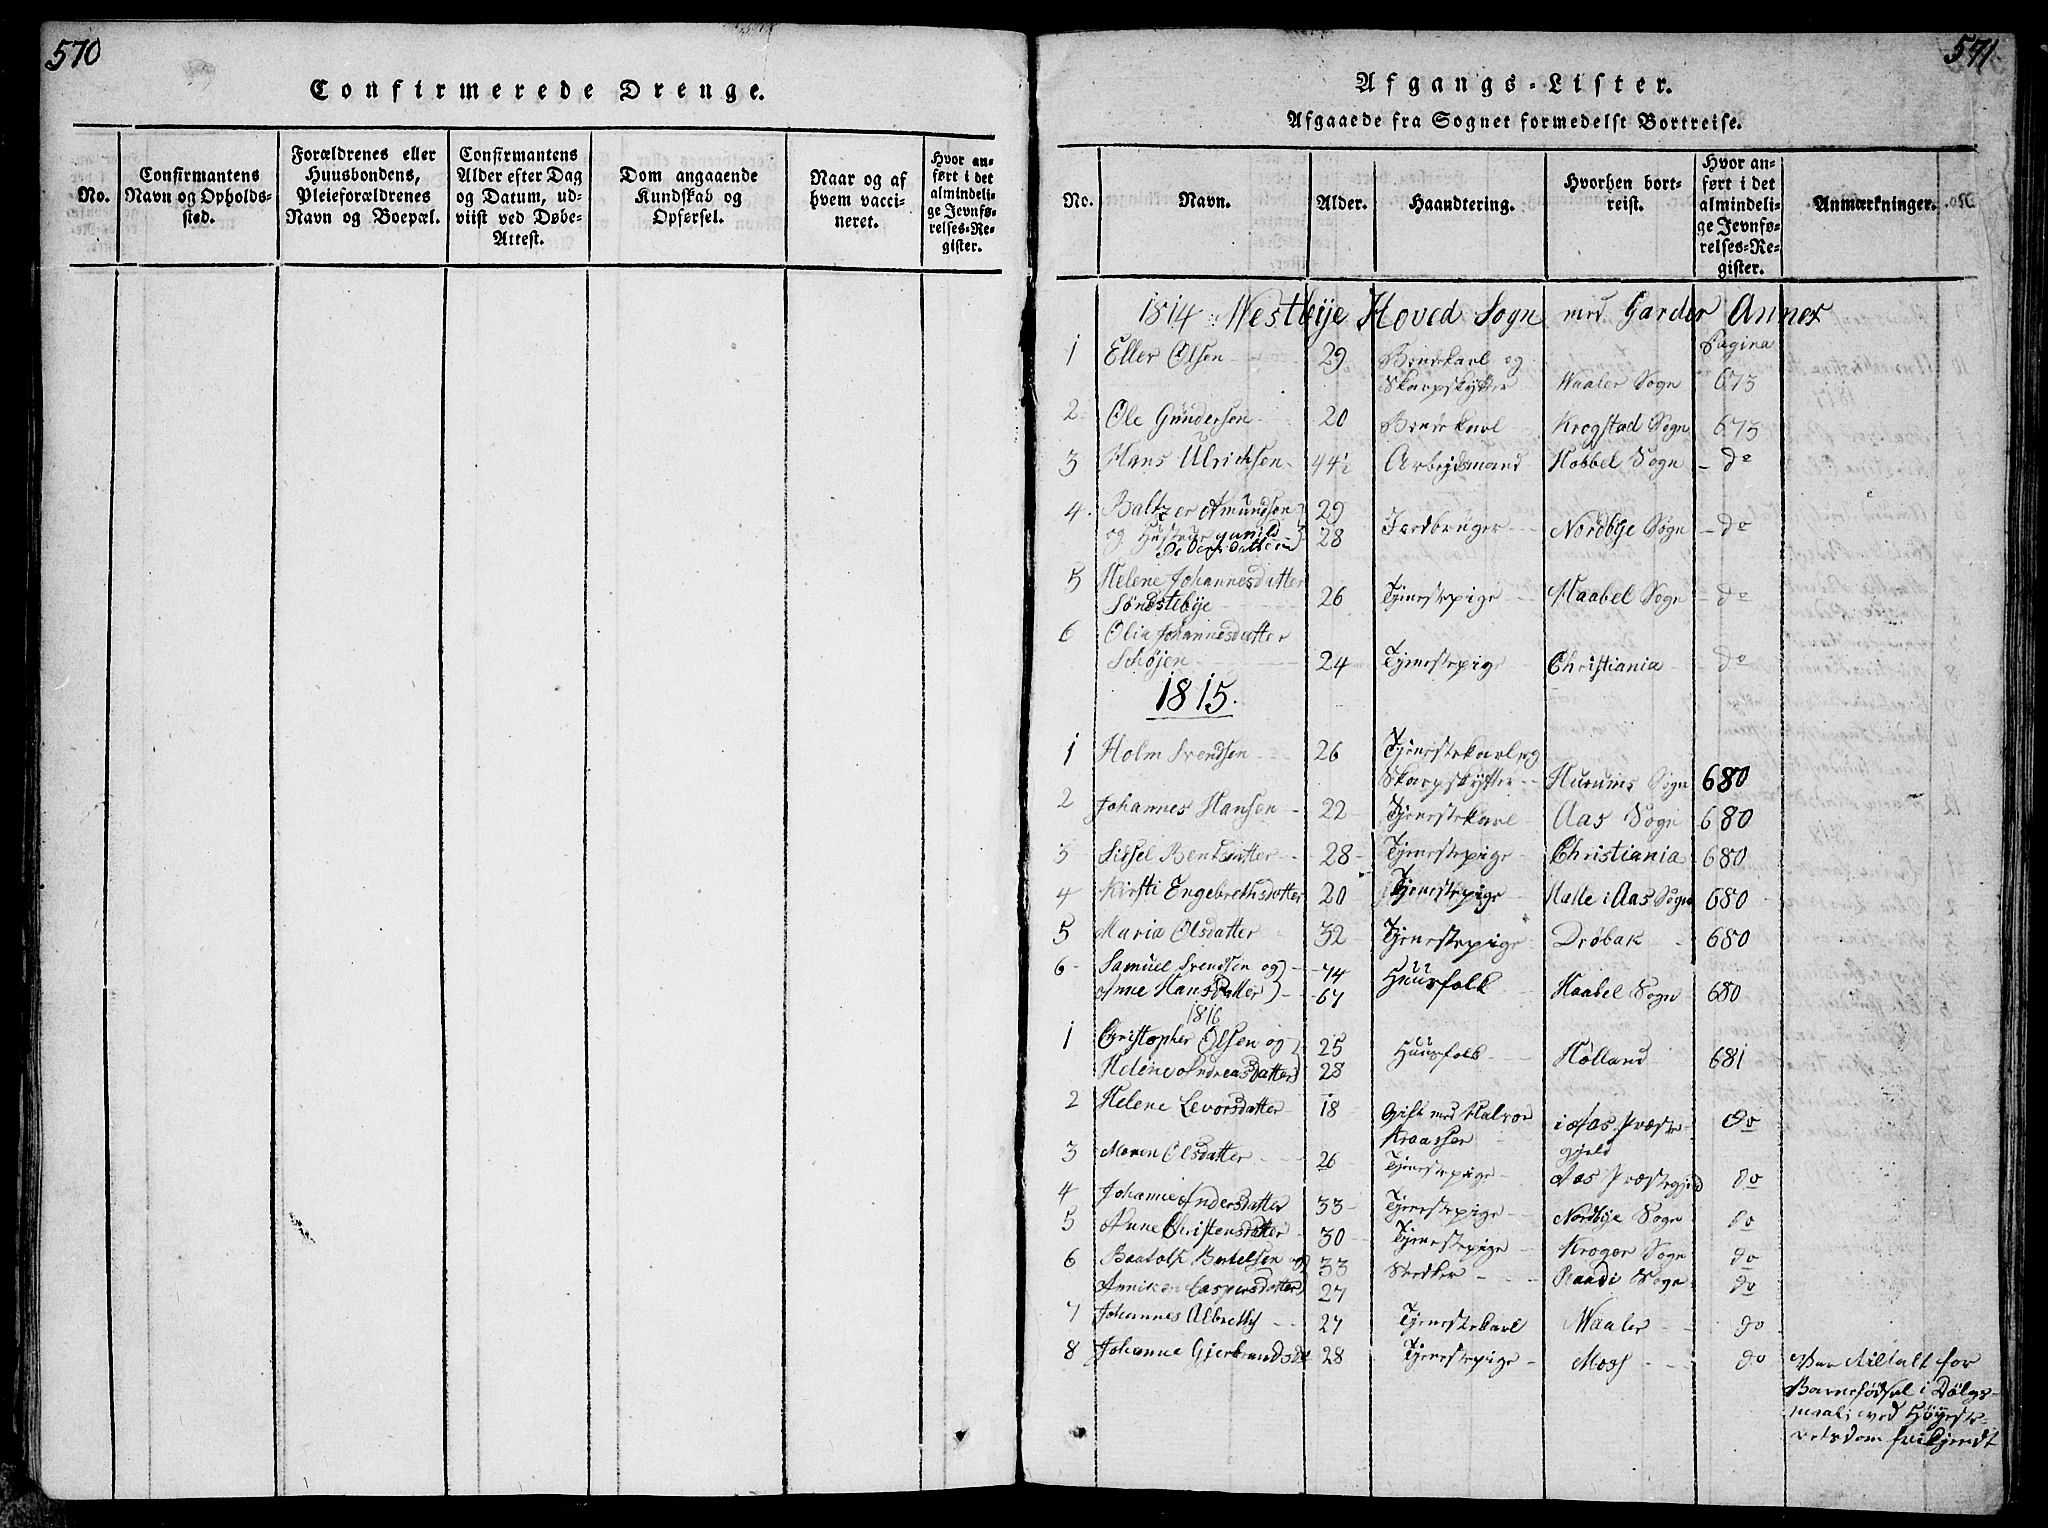 570
Confirmerede Drenge.
No.
Confirmantens Navn og Opholds-sted.
Forældrenes eller Huusbondens, Pleieforældrenes Navn og Boepæl.
Confirmantens Alder efter Dag og Datum, ud-viist ved Døbe-Attest.
Dom angaaende Kundskab og Opførsel.
Naar og af hvem vacci-neret.
Hvor an-ført i det almindeli-ge Jevnfø-relses-Re-gister.
571
Afgangs-Lister.
Afgaaede fra Sognet formedelst Bortreise.
No.
Navn.
Alder.
Haandtering.
Hvorhen bort-reist.
Hvor an-ført i det almindeli-ge Jevnfø-relses-Re-gister.
Anmærkninger.
1814 Westbÿe Hoved Sogn med Garder Annex
Pagina
1 Eller Olsen 29 Bondekarl og
Skarpskÿtter Waaler Sogn 673
2 Ole Gundersen 20 Bondekarl Krogstad Sogn 673
3 Hans Ulrichsen 44½ Arbejdsmand Hobbel Sogn do
4. Baltzer Amundsen 29
og Hustrue Gunild 28 Jordbruger Nordbÿe Sogn do
Pedersdatter
5 Helene Johannesdatter
Søndstebÿe 26 Tjenestepige Haabel Sogn do
6 Olia Johannesdatter
Schøjen 24 Tjenestepige Christiania do
1815.
1 Holm Svendsen 26 Tjenestekarl og
Skarpskÿtter Hurums Sogn 680
2 Johannes Hansen 22 Tjenestekarl Aas Sogn 680
3 Sissel Bentsdatter 28 Tjenestepige Christiania 680
4 Kirsti Engebrethsdatter 20 Tjenestepige i Aas Sogn 680
5 Maria Olsdatter 32 Tjenestepige Drøbak 680
6 Samuel Svendsen og 74
Anne Hansdatter 67 Huusfolk Haabel Sogn 680
1816
1 Christopher Olsen og 25
Helene Andreasdatter 28 Huusfolk Hølland 681
2 Helene Levorsdatter 18 Gift med Halvor
Kraasser i Aas Præste-
gjeld do
3 Maren Olsdatter 26 Tjenestepige Aas Præstegjeld do
4 Johanne Andersdatter 33 Tjenestepige Nordbÿe Sogn do
5 Anne Christensdatter 30 Tjenestepige Kroger Sogn do
6 Bertelsen og 33 Snedker Raade Sogn do
Anniken Caspersdatter 27
7 Johannes Albrethsen 27 Tjenestekarl Waaler do
8 Johanne Gjerbrandsdr 28 Tjenestepige Moss do
Var tiltalt for
Barnefødsel i Dølgs-
maal; ved Høÿeste-
retsdom frikjendt